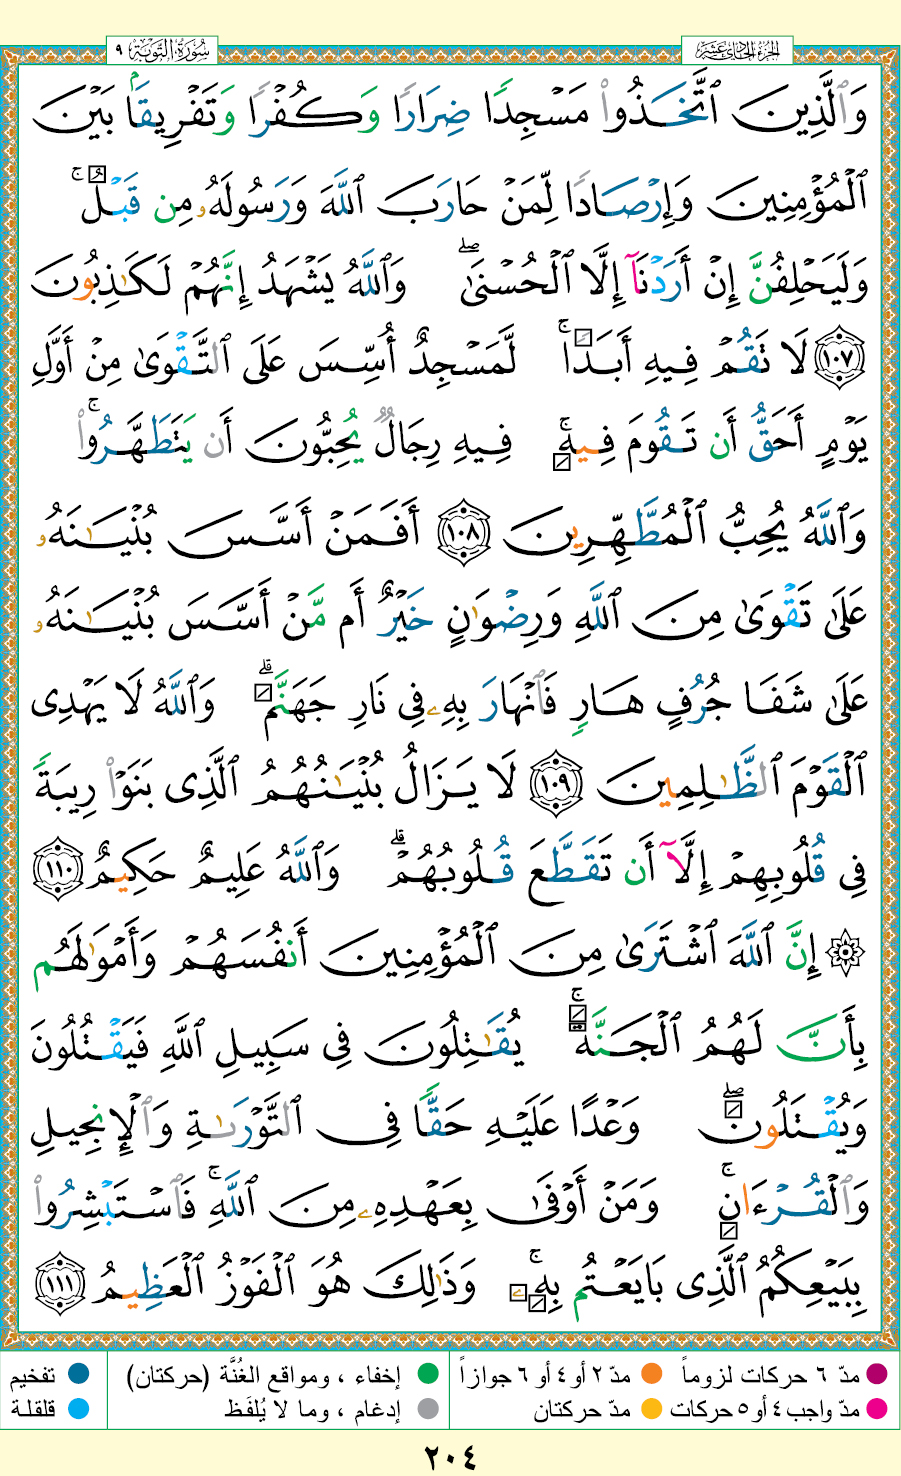 الجزء الحادي عشر
سُورَةُ التَّوْبَةِ ٩
وَٱلَّذِينَ ٱتَّخَذُوا۟ مَسْجِدًا ضِرَارًا وَكُفْرًا وَتَفْرِيقًۢا بَيْنَ
ٱلْمُؤْمِنِينَ وَإِرْصَادًا لِّمَنْ حَارَبَ ٱللَّهَ وَرَسُولَهُۥ مِن قَبْلُ ۚ
وَلَيَحْلِفُنَّ إِنْ أَرَدْنَآ إِلَّا ٱلْحُسْنَىٰ ۖ وَٱللَّهُ يَشْهَدُ إِنَّهُمْ لَكَـٰذِبُونَ
١٠٧ لَا تَقُمْ فِيهِ أَبَدًا ۚ لَّمَسْجِدٌ أُسِّسَ عَلَى ٱلتَّقْوَىٰ مِنْ أَوَّلِ
يَوْمٍ أَحَقُّ أَن تَقُومَ فِيهِ ۚ فِيهِ رِجَالٌ يُحِبُّونَ أَن يَتَطَهَّرُوا۟ ۚ
وَٱللَّهُ يُحِبُّ ٱلْمُطَّهِّرِينَ ١٠٨ أَفَمَنْ أَسَّسَ بُنْيَـٰنَهُۥ
عَلَىٰ تَقْوَىٰ مِنَ ٱللَّهِ وَرِضْوَٰنٍ خَيْرٌ أَم مَّنْ أَسَّسَ بُنْيَـٰنَهُۥ
عَلَىٰ شَفَا جُرُفٍ هَارٍ فَٱنْهَارَ بِهِۦ فِى نَارِ جَهَنَّمَ ۗ وَٱللَّهُ لَا يَهْدِى
ٱلْقَوْمَ ٱلظَّـٰلِمِينَ ١٠٩ لَا يَزَالُ بُنْيَـٰنُهُمُ ٱلَّذِى بَنَوْا۟ رِيبَةً
فِى قُلُوبِهِمْ إِلَّآ أَن تَقَطَّعَ قُلُوبُهُمْ ۗ وَٱللَّهُ عَلِيمٌ حَكِيمٌ ١١٠
۞ إِنَّ ٱللَّهَ ٱشْتَرَىٰ مِنَ ٱلْمُؤْمِنِينَ أَنفُسَهُمْ وَأَمْوَٰلَهُم
بِأَنَّ لَهُمُ ٱلْجَنَّةَ ۚ يُقَـٰتِلُونَ فِى سَبِيلِ ٱللَّهِ فَيَقْتُلُونَ
وَيُقْتَلُونَ ۖ وَعْدًا عَلَيْهِ حَقًّا فِى ٱلتَّوْرَىٰةِ وَٱلْإِنجِيلِ
وَٱلْقُرْءَانِ ۚ وَمَنْ أَوْفَىٰ بِعَهْدِهِۦ مِنَ ٱللَّهِ ۚ فَٱسْتَبْشِرُوا۟
بِبَيْعِكُمُ ٱلَّذِى بَايَعْتُم بِهِۦ ۚ وَذَٰلِكَ هُوَ ٱلْفَوْزُ ٱلْعَظِيمُ ١١١
مدّ ٦ حركات لزوماً مدّ ٢ أو ٤ أو ٦ جوازاً إخفاء ، ومواقع الغُنَّة (حركتان) تفخيم
مدّ واجب ٤ أو ٥ حركات مدّ حركتان إدغام ، وما لا يُلفَظ قلقلة
٢٠٤